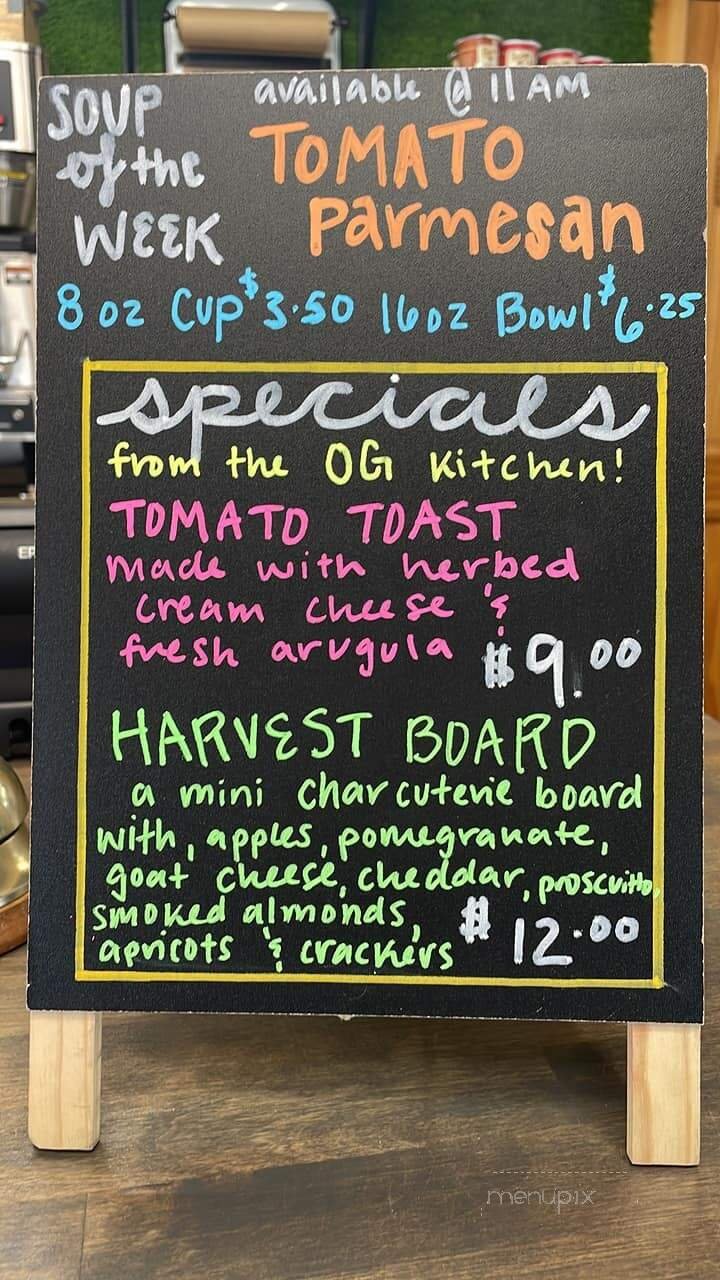 SOUP of the WEEK
available @ 11 AM
TOMATO
Parmesan
8 oz Cup $3.50 16 oz Bowl $6.25
specials
from the OG Kitchen!
TOMATO TOAST
made with herbed
cream cheese &
fresh arugula $9.00
HARVEST BOARD
a mini charcuterie board
with, apples, pomegranate,
goat cheese, cheddar, proscuitto,
smoked almonds,
apricots & crackers $12.00
menupix